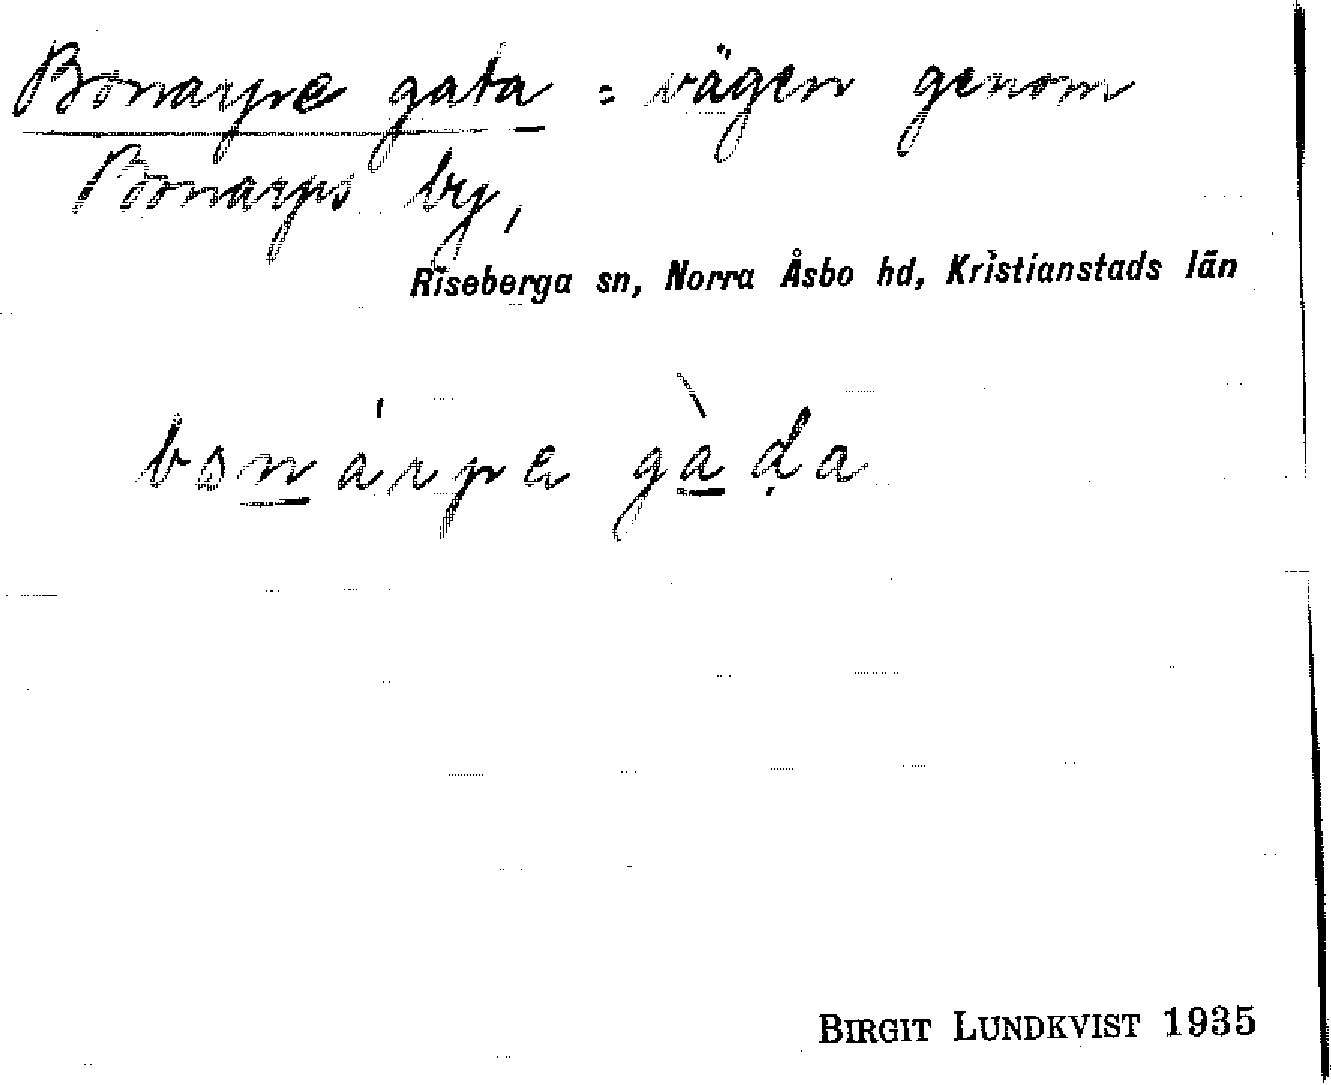 Bonarpe gata = vägen genom
Bonarps by,
Riseberga sn, Norra Åsbo hd, Kristianstads län
bonárpe gàḍa
BIRGIT LUNDKVIST 1935